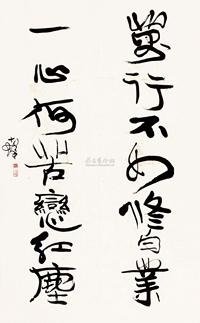 萬行不如修自業
一心何苦戀紅塵